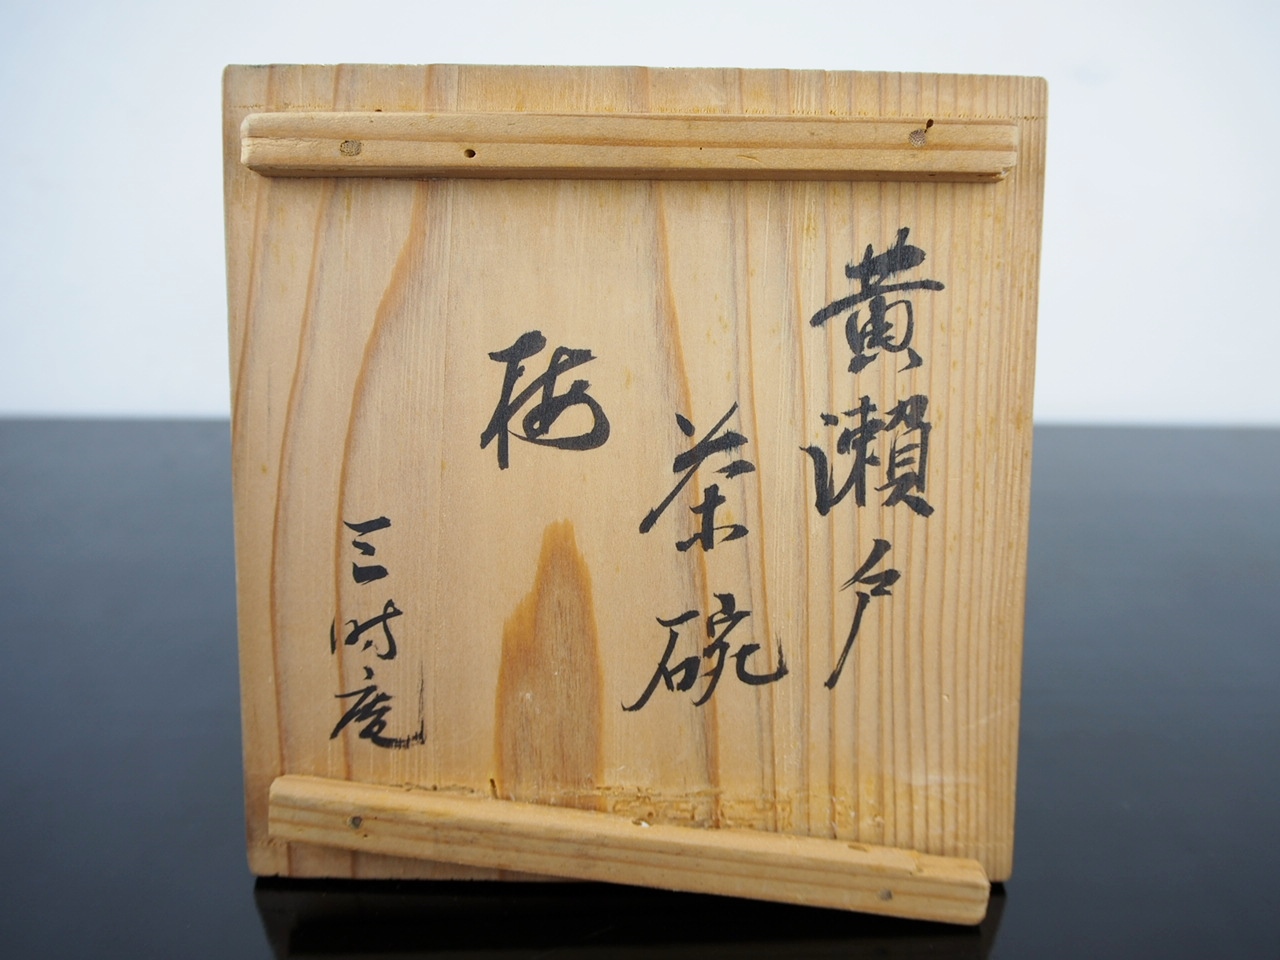 黄瀬戸
茶碗
梅
三時庵